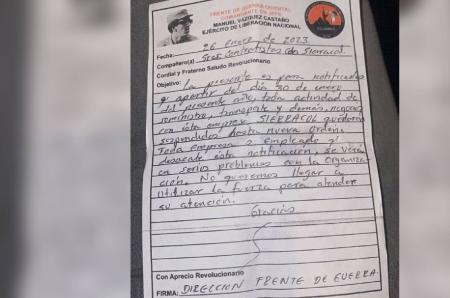 FRENTE DE GUERRA ORIENTAL
COMANDANTE EN JEFE
MANUEL VAZQUEZ CASTAÑO
EJÉRCITO DE LIBERACIÓN NACIONAL
Fecha: 26 enero de 2023
Compañero(a) Sres Contratistas con Sierracol
Cordial y Fraterno Saludo Revolucionario
Objetivo: La presente es para notificarles
q' apartir del dia 30 de enero
del presente año, toda actividad de
suministro, transporte y demás, negocios
con ésta empresa SIERRACOL quedaran
suspendidos hasta nueva orden.
Toda empresa o empleado q'
desacate ésta notificación, se verá
en serios problemas con la Organiza-
ción. No queremos llegar a
utilizar la fuerza para atender
su atención.
Gracias
Con Aprecio Revolucionario
FIRMA: DIRECCION FRENTE DE GUERRA